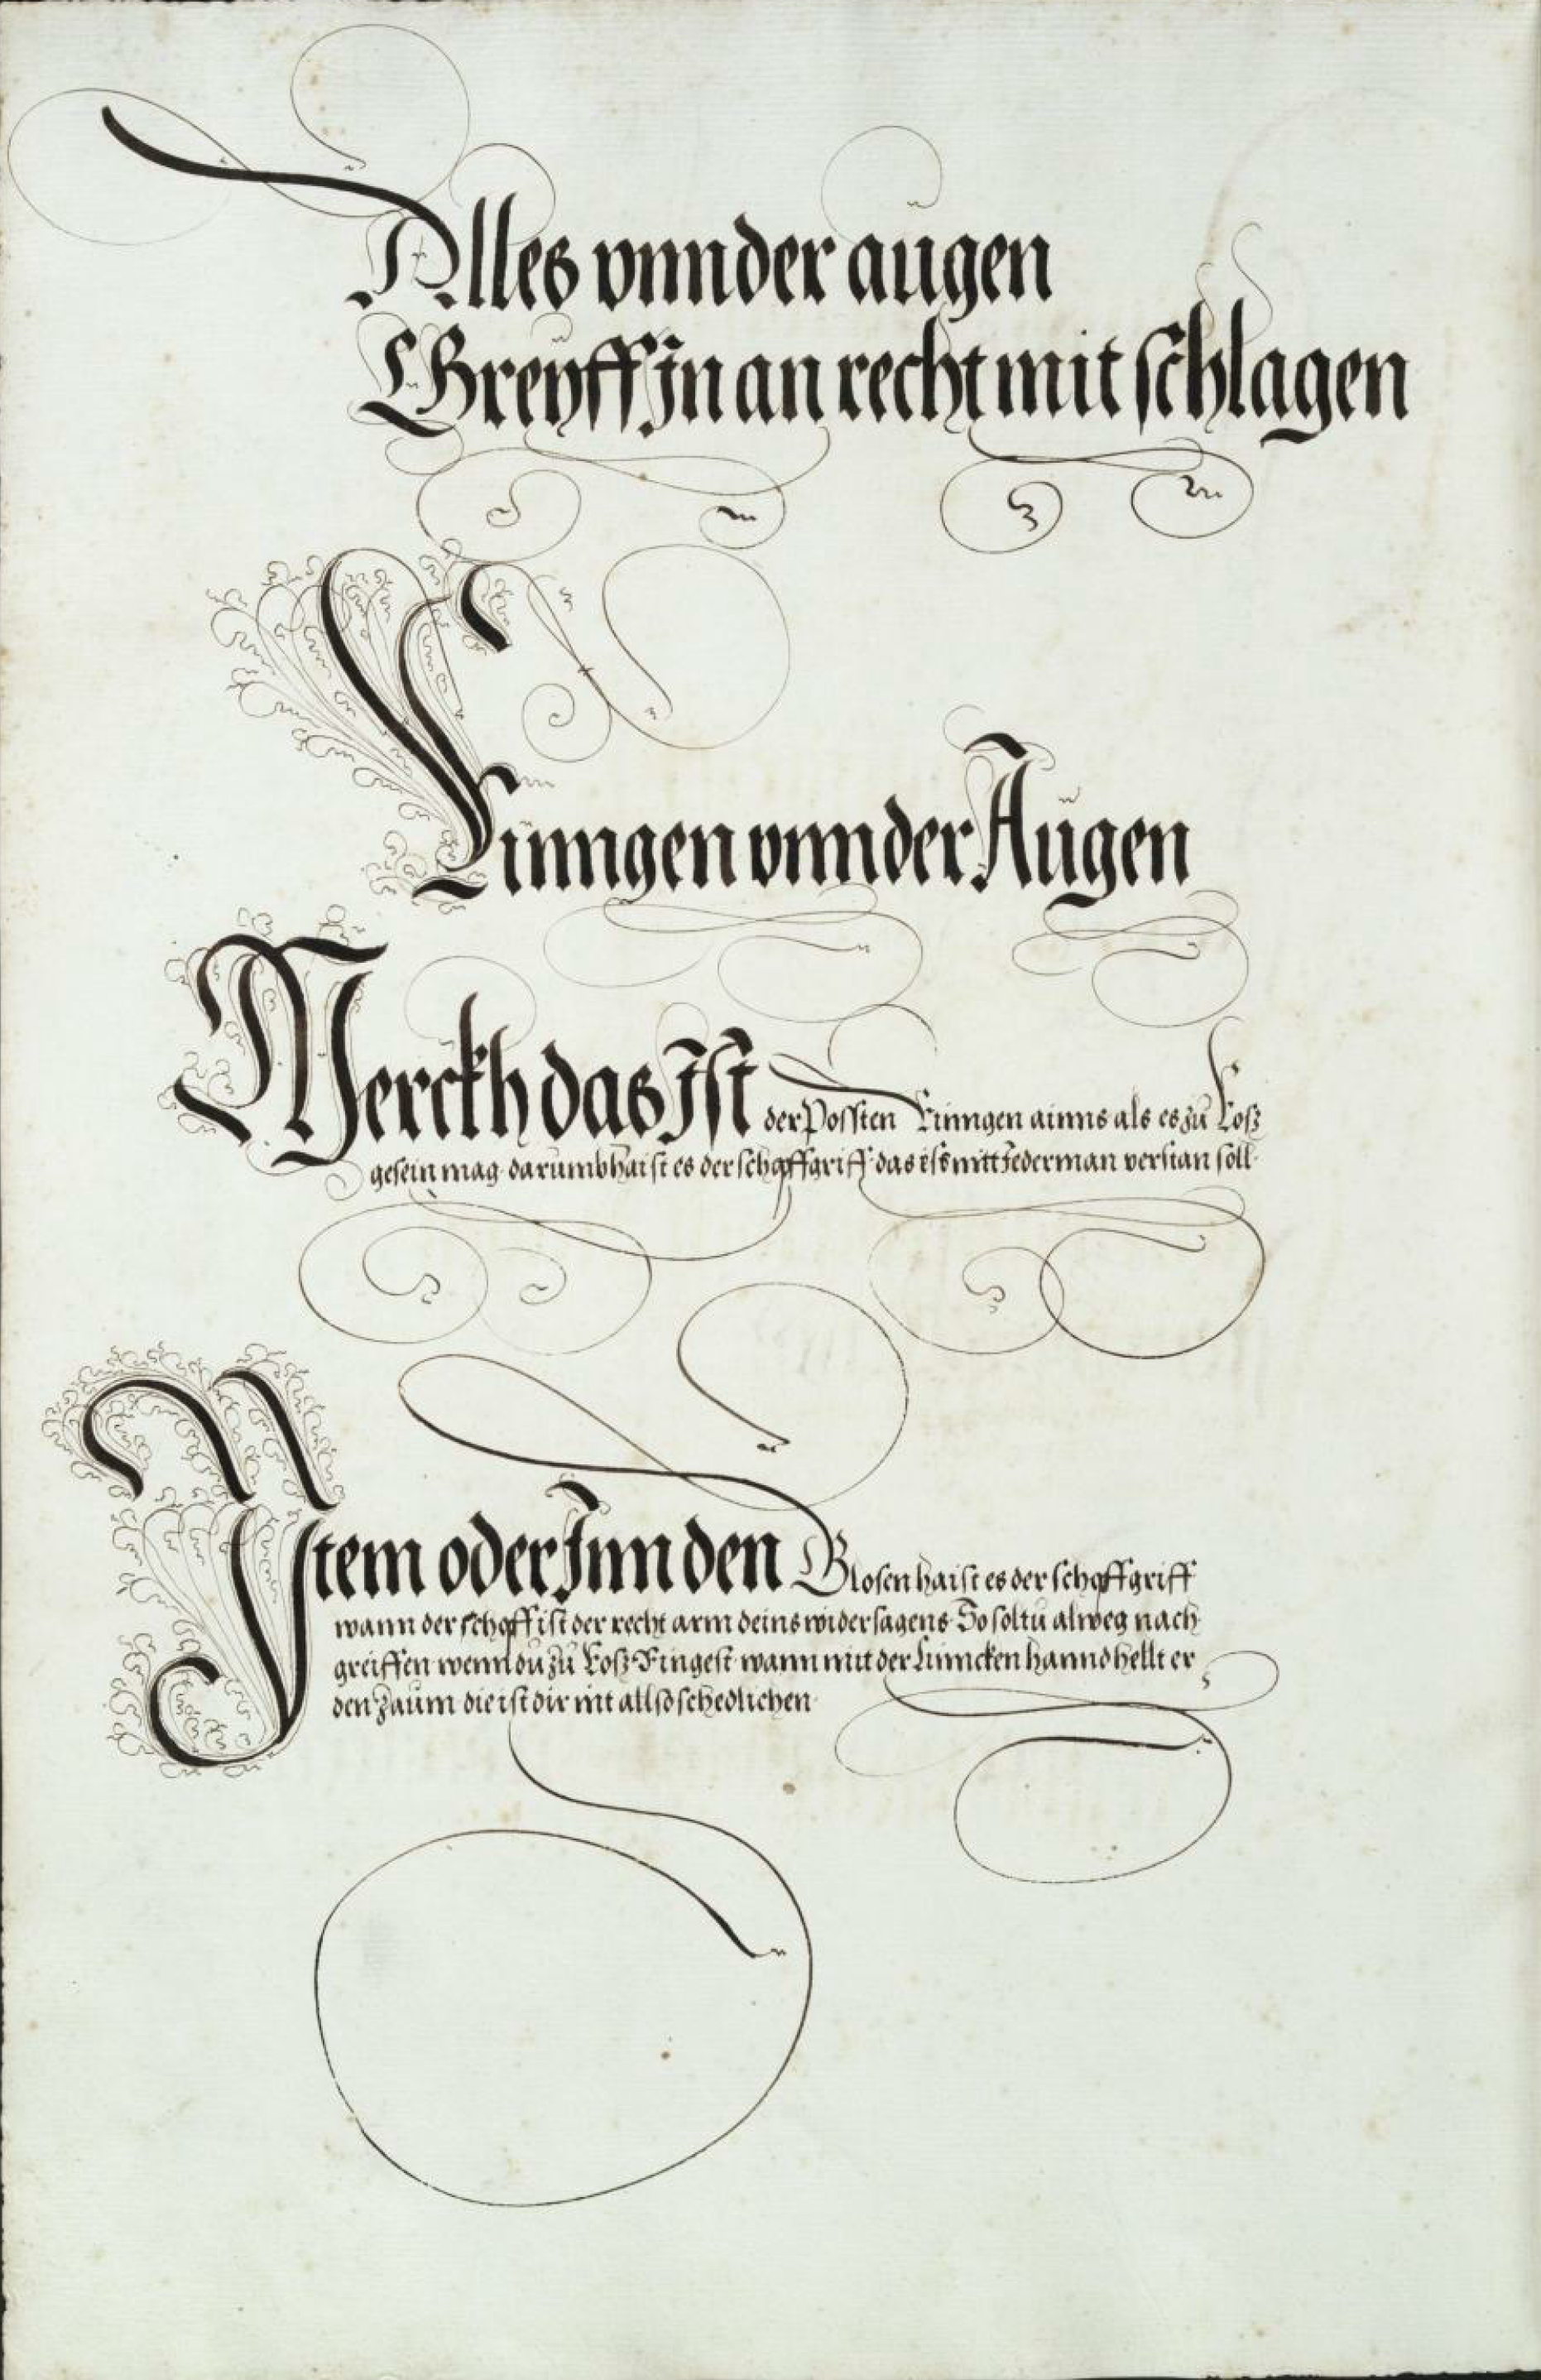 Alles vnnder augen
Greyff jn an recht mit schlagen
Ringen vnnder Augen
Merckh das Jst der Possten Ringen ainns als es zu Roß
gesein mag darumb haist es der schoffgriff das es nitt Jederman verstan soll
Jtem oder Jnn den Blosen haist es der schoffgriff
wann der schoff ist der recht arm deins widersagens So soltu alweg nach
greiffen wenn du zu Roß Ringest wann mitt der Linncken hannd hellt er
den Zaum die ist dir nit allso schedlichen